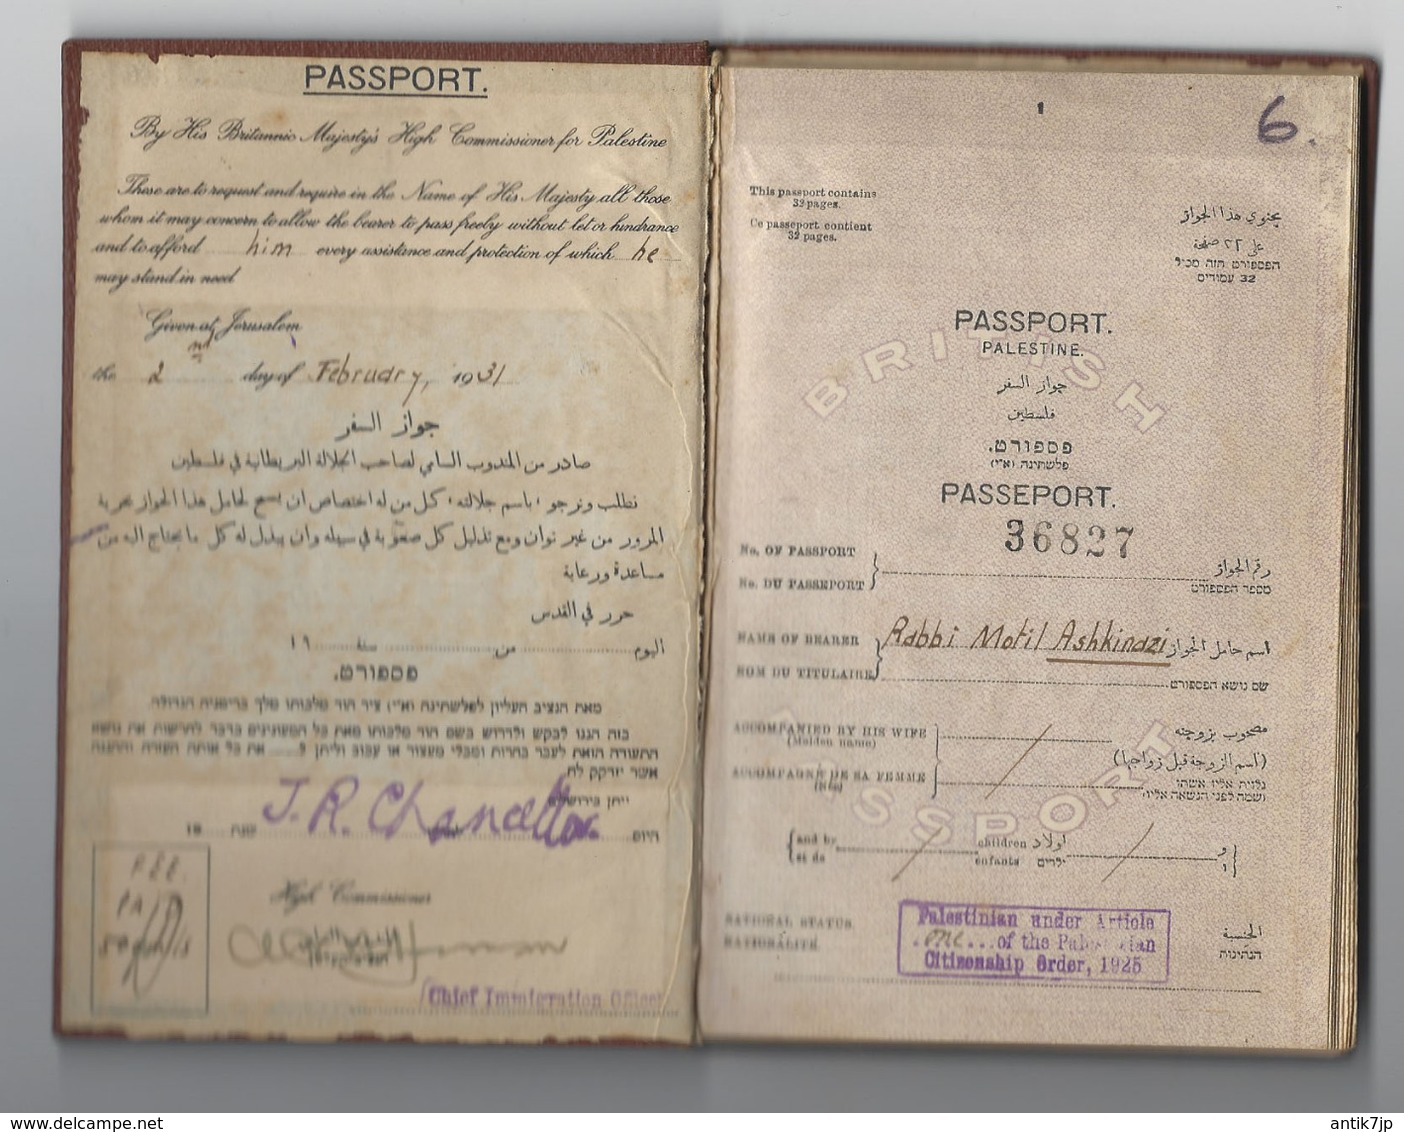 PASSPORT.
By His Britannic Majesty's High Commissioner for Palestine
These are to request and require in the Name of His Majesty all those
whom it may concern to allow the bearer to pass freely without let or hindrance
and to afford him every assistance and protection of which he
may stand in need
Given at Jerusalem
the 2nd day of February, 1931
جواز السفر
صادر من المندوب السامي لصاحب الجلالة البريطانية في فلسطين
نطلب ونرجو باسم جلالته كل من له اختصاص ان يسمح لحامل هذا الجواز بحرية
المرور من غير توان ومع تذليل كل صعوبة في سبيله وان يبذل له كل ما يحتاج اليه من
مساعدة ورعاية
حرر في القدس
اليوم من سنة ١٩
פספורט.
מאת הנציב העליון לפלשתינה (א״י) ציר הוד מלכותו מלך בריטניה הגדולה.
בזה הננו לבקש ולדרוש בשם הוד מלכותו מאת כל המעונינים בדבר להרשות את נושא
התעודה הזאת לעבר בחרות ומבלי מעצור או עכוב וליתן ל את כל אותה העזרה וההגנה
אשר יזדקק לה.
ניתן בירושלים
היום שנת 19
J. R. Chancellor
High Commissioner
FEE
PAID
Chief Immigration Officer
1
6.
This passport contains
32 pages.
Ce passeport contient
32 pages.
يحتوي هذا الجواز
على ٣٢ صفحة
הפספורט הזה מכיל
32 עמודים
BRITISH
PASSPORT
PASSPORT.
PALESTINE.
جواز السفر
فلسطين
פספורט.
פלשתינה (א״י)
PASSEPORT.
36827
No. OF PASSPORT
No. DU PASSEPORT
رقم الجواز
מספר הפספורט
NAME OF BEARER
NOM DU TITULAIRE
Rabbi Motil Ashkinazi
اسم حامل الجواز
שם נושא הפספורט
ACCOMPANIED BY HIS WIFE
(Maiden name)
ACCOMPAGNÉ DE SA FEMME
(Née)
مصحوب بزوجته
(اسم الزوجة قبل زواجها)
נלוית אליו אשתו
(שמה לפני הנשאה אליו)
and by
et de
children اولاد
enfants ילדים
و
ו
NATIONAL STATUS.
NATIONALITÉ.
Palestinian under Article
one of the Palestinian
Citizenship Order, 1925
الجنسية
הנתינות
www.delcampe.net
antik7jp